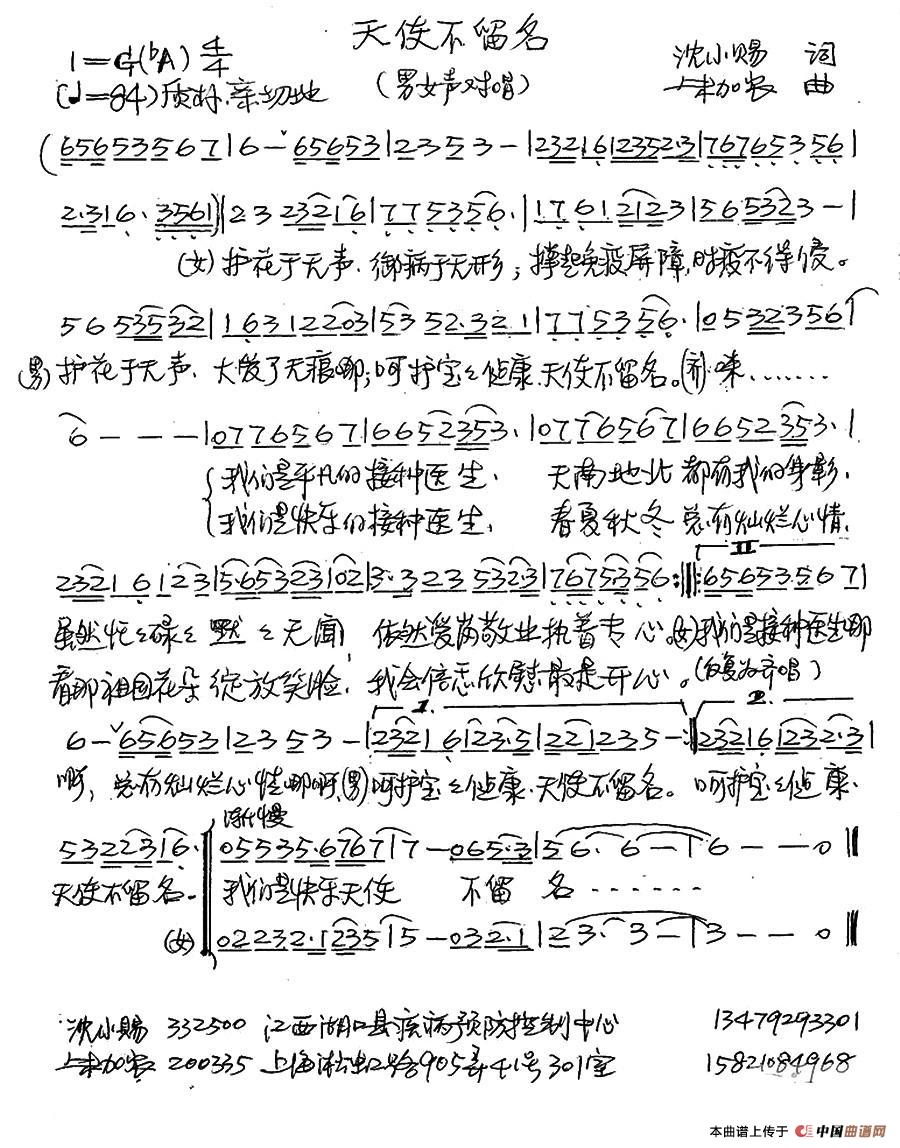 天使不留名
1=G(♭A) 4/4
沈小赐 词
(♩=84) 质朴、亲切地
(男女声对唱)
朱加农 曲
(656535676 7|6-ˇ65653|2353-|2321612352·3|7676535 56|
2·316·3561)|23 232 16|77 5356·|17 61 2123|56 5323-|
(女)护花于无声、御病于无形;撑起免疫屏障,时疫不得侵。
56 53532|1631 2203|53 52·321|77 5356·|05323 56|
(男)护花于无声、大爱了无痕哪;呵护宝々健康、天使不留名。(齐)味.......
6 - - -|0776567|6652353·|0776567|6652353·|
我们是平凡的接种医生、 天南地北都有我的身影、
我们是快乐的接种医生、 春夏秋冬总有灿烂心情、
2321 6 123|5·6532302|3·323 532·3|76753 56:‖:656535·67|
虽然忙々碌々默々无闻, 依然爱岗敬业执着专心。(女)我们是接种医生哪
看那祖国花朵绽放笑脸、 我会倍感欣慰最是开心。(反复为齐唱)
6-ˇ65653|2353-|2321 6 123·5|221235-:‖2321612 32·3|
啊,总有灿烂心情哪啊,(男)呵护宝々健康、天使不留名。呵护宝々健康、
渐慢
532 2316·‖05535·6767|7-065·3|56·6-|6--0‖
天使不留名。 我们是快乐天使 不留 名......
(女) 02232·1235|5-032·1|23·3-|3--0‖
沈小赐 332500 江西湖口县疾病预防控制中心 13479293301
朱加农 200335 上海淞虹路905弄41号301室 15821084968
本曲谱上传于 中国曲谱网